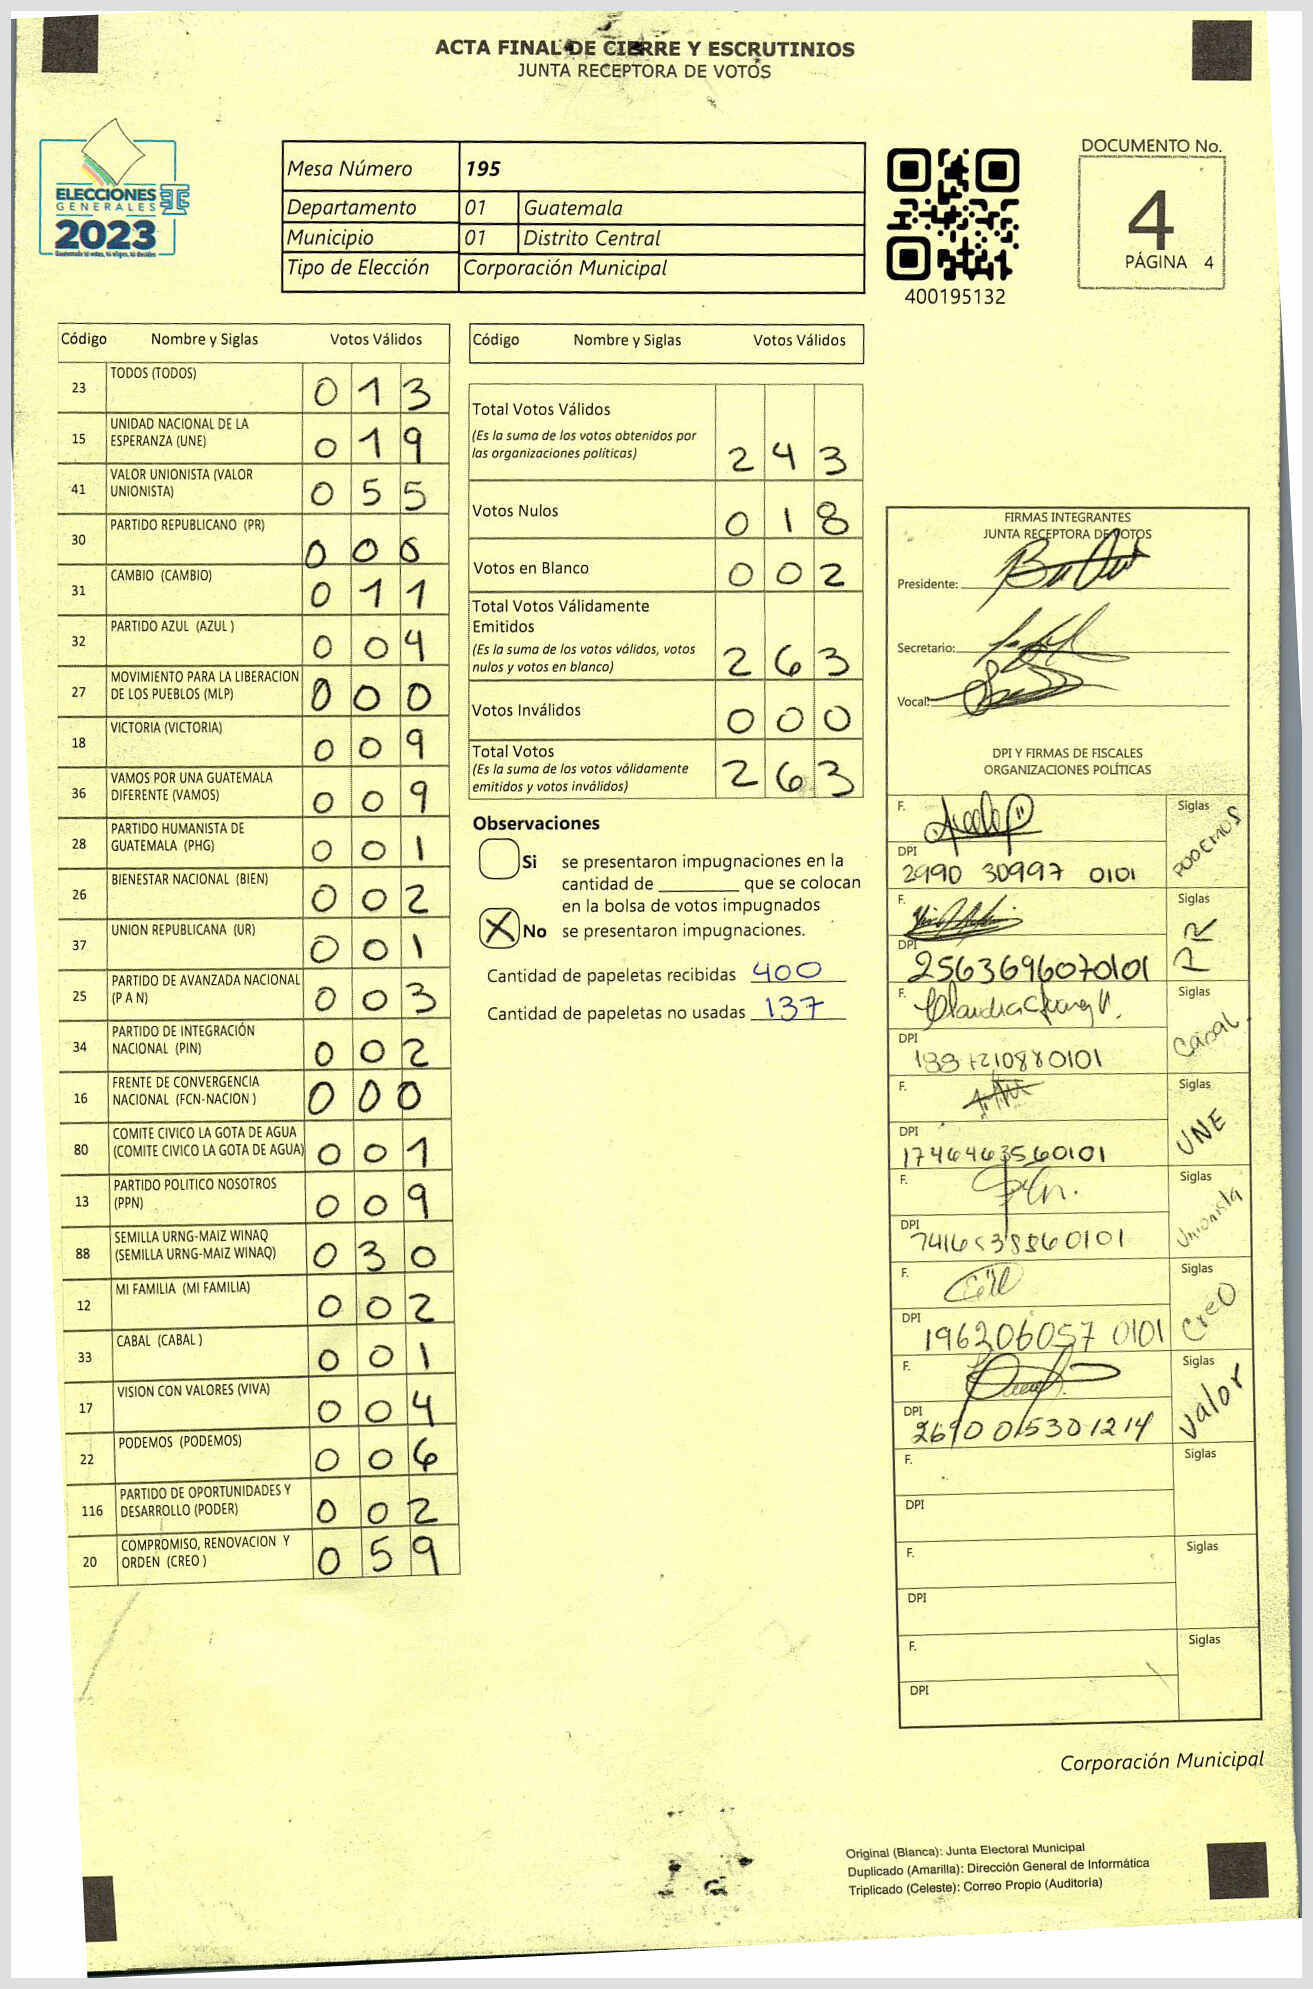 ACTA FINAL DE CIERRE Y ESCRUTINIOS
JUNTA RECEPTORA DE VOTOS
ELECCIONES
GENERALES
2023
Mesa Número 195
Departamento 01 Guatemala
Municipio 01 Distrito Central
Tipo de Elección Corporación Municipal
400195132
DOCUMENTO No.
4
PÁGINA 4
Código Nombre y Siglas Votos Válidos
23 TODOS (TODOS) 0 1 3
15 UNIDAD NACIONAL DE LA
ESPERANZA (UNE) 0 1 9
41 VALOR UNIONISTA (VALOR
UNIONISTA) 0 5 5
30 PARTIDO REPUBLICANO (PR) 0 0
31 CAMBIO (CAMBIO) 0 1 1
32 PARTIDO AZUL (AZUL ) 0 0 4
27 MOVIMIENTO PARA LA LIBERACION
DE LOS PUEBLOS (MLP) 0 0 0
18 VICTORIA (VICTORIA) 0 0 9
36 VAMOS POR UNA GUATEMALA
DIFERENTE (VAMOS) 0 0 9
28 PARTIDO HUMANISTA DE
GUATEMALA (PHG) 0 0 1
26 BIENESTAR NACIONAL (BIEN) 0 0 2
37 UNION REPUBLICANA (UR) 0 0 1
25 PARTIDO DE AVANZADA NACIONAL
(P A N) 0 0 3
34 PARTIDO DE INTEGRACIÓN
NACIONAL (PIN) 0 0 2
16 FRENTE DE CONVERGENCIA
NACIONAL (FCN-NACION ) 0 0 0
80 COMITE CIVICO LA GOTA DE AGUA
(COMITE CIVICO LA GOTA DE AGUA) 0 0 1
13 PARTIDO POLITICO NOSOTROS
(PPN) 0 0 9
88 SEMILLA URNG-MAIZ WINAQ
(SEMILLA URNG-MAIZ WINAQ) 0 3 0
12 MI FAMILIA (MI FAMILIA) 0 0 2
33 CABAL (CABAL ) 0 0 1
17 VISION CON VALORES (VIVA) 0 0 4
22 PODEMOS (PODEMOS) 0 0 6
116 PARTIDO DE OPORTUNIDADES Y
DESARROLLO (PODER) 0 0 2
20 COMPROMISO, RENOVACION Y
ORDEN (CREO ) 0 5 9
Código Nombre y Siglas Votos Válidos
Total Votos Válidos
(Es la suma de los votos obtenidos por
las organizaciones políticas) 2 4 3
Votos Nulos 0 1 8
Votos en Blanco 0 0 2
Total Votos Válidamente
Emitidos
(Es la suma de los votos válidos, votos
nulos y votos en blanco) 2 6 3
Votos Inválidos 0 0 0
Total Votos
(Es la suma de los votos válidamente
emitidos y votos inválidos) 2 6 3
Observaciones
Si se presentaron impugnaciones en la
cantidad de ________ que se colocan
en la bolsa de votos impugnados
X No se presentaron impugnaciones.
Cantidad de papeletas recibidas 400
Cantidad de papeletas no usadas 137
FIRMAS INTEGRANTES
JUNTA RECEPTORA DE VOTOS
Presidente:
Secretario:
Vocal:
DPI Y FIRMAS DE FISCALES
ORGANIZACIONES POLÍTICAS
F. Siglas PODEMOS
DPI
2990 30997 0101
F. Siglas PR
DPI
2563696070101
F. Siglas Cabal
DPI
F. Siglas UNE
DPI
1746463560101
F. Siglas Unionista
DPI
F. Siglas CREO
DPI
196206057 0101
F. Siglas Valor
DPI
2690 015301214
F. Siglas
DPI
F. Siglas
DPI
F. Siglas
DPI
Corporación Municipal
Original (Blanca): Junta Electoral Municipal
Duplicado (Amarilla): Dirección General de Informática
Triplicado (Celeste): Correo Propio (Auditoría)